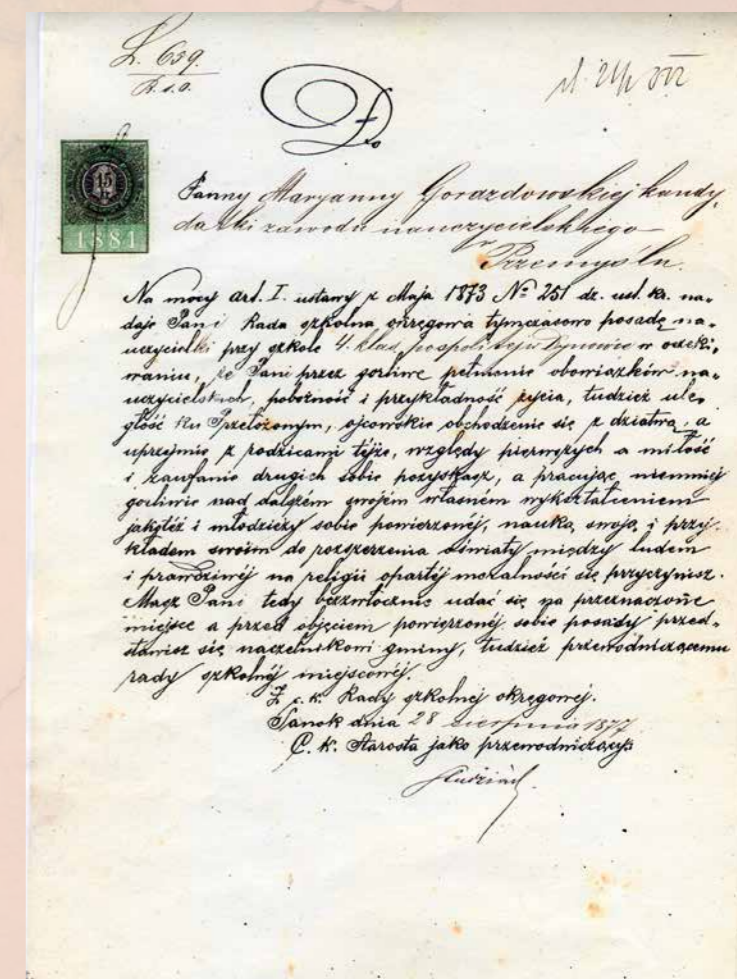 L. 639.
R. s. o.
Do
15
1881
Panny Maryanny Gorazdowskiej kandy„
datki zawodu nauczycielskiego
w
Przemyślu.
Na mocy art. I. ustawy z Maja 1873 No 251 dz. ust. kr. na„
daje Pani Rada szkolna okręgowa tymczasowo posadę na„
uczycielki przy szkole 4. klas. pospolitej w Dynowie w oczeki„
waniu, że Pani przez gorliwe pełnienie obowiązków na„
uczycielskich, pobożność i przykładność życia, tudzież ule„
głość ku Przełożonym, ojcowskie obchodzenie się z dziatwą, a
uprzejmie z rodzicami tejże, względy pierwszych a miłość
i zaufanie drugich sobie pozyskasz, a pracując niemniej
gorliwie nad dalszém swojém własném wykształceniem
jakotéż i młodzieży sobie powierzonéj, nauką swoją i przy„
kładem swoim do rozszerzenia oświaty między ludem
i prawdziwéj na religii opartéj moralności się przyczynisz.
Masz Pani tedy bezzwłocznie udać się na przeznaczone
miejsce a przed objęciem powierzonéj sobie posady przed„
stawisz się naczelnikowi gminy, tudzież przewodniczącemu
rady szkolnéj miejscowéj.
Z c. k. Rady szkolnéj okręgowéj.
Sanok dnia 28 sierpnia 1877
C. k. Starosta jako przewodniczący: